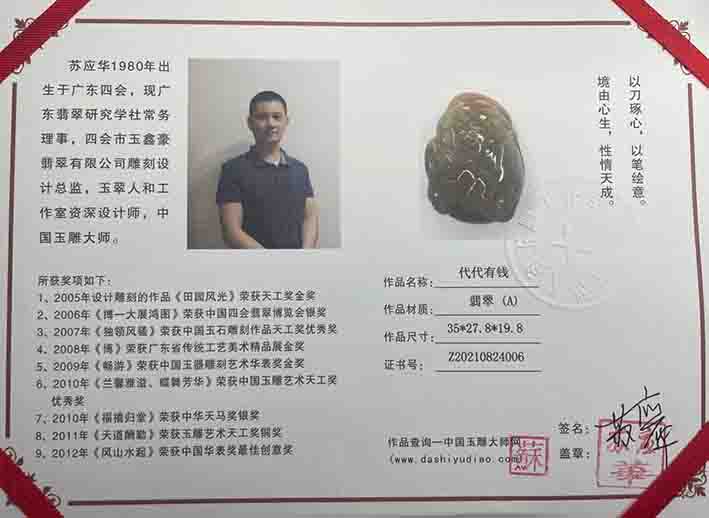 苏应华1980年出
生于广东四会，现广
东翡翠研究学社常务
理事，四会市玉鑫豪
翡翠有限公司雕刻设
计总监，玉翠人和工
作室资深设计师，中
国玉雕大师。
以刀琢心，以笔绘意。
境由心生，性情天成。
所获奖项如下：
1、2005年设计雕刻的作品《田园风光》荣获天工奖金奖
2、2006年《博一大展鸿图》荣获中国四会翡翠博览会银奖
3、2007年《独领风骚》荣获中国玉石雕刻作品天工奖优秀奖
4、2008年《博》荣获广东省传统工艺美术精品展金奖
5、2009年《畅游》荣获中国玉器雕刻艺术华表奖金奖
6、2010年《兰馨雅溢、蝶舞芳华》荣获中国玉雕艺术天工奖
优秀奖
7、2010年《福禧归堂》荣获中华天马奖银奖
8、2011年《天道酬勤》荣获玉雕艺术天工奖铜奖
9、2012年《风山水起》荣获中国华表奖最佳创意奖
作品名称： 代代有钱
作品材质： 翡翠（A）
作品尺寸： 35*27.8*19.8
证书号： Z20210824006
作品查询一中国玉雕大师网
(www.dashiyudiao.com)
苏
签名： 苏应华
盖章：